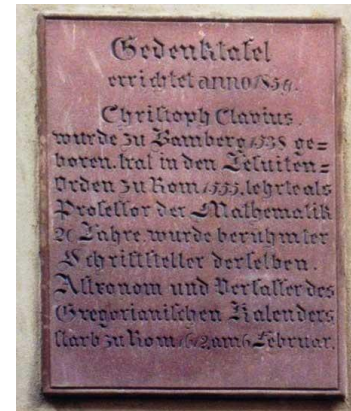 Gedenktafel
errichtet anno 1854.
Christoph Clavius.
wurde zu Bamberg 1538 ge=
boren. trat in den Jesuiten=
Orden zu Rom 1555. lehrte als
Professor der Mathematik
20 Jahre. wurde berühmter
Schriftsteller derselben.
Astronom und Verfasser des
Gregorianischen Kalenders
starb zu Rom 1612, am 6 Februar.